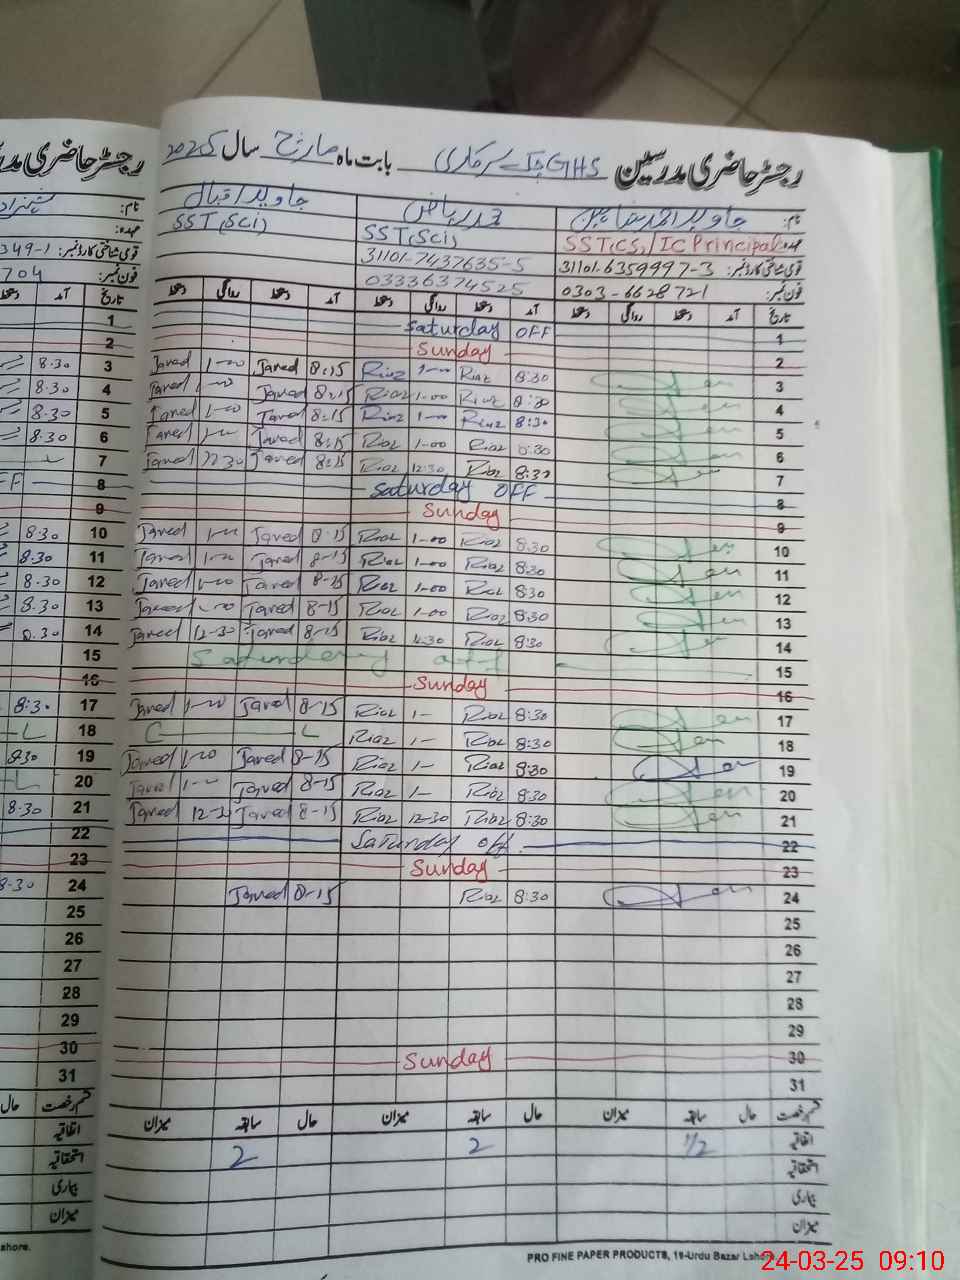 رجسٹر حاضری مدرسین GHS چک سرکاری بابت ماہ مارچ سال 2025
نام: جاوید احمد شاہین محمد ریاض جاوید اقبال
عہدہ: SST(CS)/IC Principal SST(Sci) SST(Sci)
قومی شناختی کارڈ نمبر: 31101-6359997-3 31101-7437635-5
فون نمبر: 0303-6628721 03336374525
تاریخ آمد دستخط روانگی دستخط آمد دستخط روانگی دستخط آمد دستخط روانگی دستخط
1 Saturday OFF
2 Sunday
3 8:30 Riaz 1-00 Riaz 8:15 Javed 1-00 Javed
4 8:30 Riaz 1-00 Riaz 8:15 Javed 1-00 Javed
5 8:30 Riaz 1-00 Riaz 8:15 Javed 1-00 Javed
6 8:30 Riaz 1-00 Riaz 8:15 Javed 1-00 Javed
7 8:30 Riaz 12:30 Riaz 8:15 Javed 12-30 Javed
8 Saturday OFF
9 Sunday
10 8:30 Riaz 1-00 Riaz 8-15 Javed 1-00 Javed
11 8:30 Riaz 1-00 Riaz 8-15 Javed 1-00 Javed
12 8:30 Riaz 1-00 Riaz 8-15 Javed 1-00 Javed
13 8:30 Riaz 1-00 Riaz 8-15 Javed 1-00 Javed
14 8:30 Riaz 12:30 Riaz 8-15 Javed 12-30 Javed
15 Saturday off
16 Sunday
17 8:30 Riaz 1- Riaz 8-15 Javed 1-00 Javed
18 8:30 Riaz 1- Riaz C L
19 8:30 Riaz 1- Riaz 8-15 Javed 1-00 Javed
20 8:30 Riaz 1- Riaz 8-15 Javed 1-00 Javed
21 8:30 Riaz 12-30 Riaz 8-15 Javed 12-30 Javed
22 Saturday off
23 Sunday
24 8:30 Riaz 8-15 Javed
25
26
27
28
29
30 Sunday
31
قسم رخصت حال سابقہ میزان حال سابقہ میزان حال سابقہ میزان
اتفاقیہ 1/2 2 2
استحقاقیہ
بیماری
میزان
PRO FINE PAPER PRODUCTS, 19-Urdu Bazar Lahore.
رجسٹر حاضری مدر
نام:
عہدہ:
قومی شناختی کارڈ نمبر: 349-1
فون نمبر: 704
تاریخ آمد دستخط
1
2
3 8.30
4 8.30
5 8.30
6 8.30
7
8 FF
9
10 8.30
11 8.30
12 8.30
13 8.30
14 8.30
15
16
17 8:30
18 L
19 8:30
20 L
21 8.30
22
23
24 8-30
25
26
27
28
29
30
31
قسم رخصت حال
اتفاقیہ
استحقاقیہ
بیماری
میزان
ahore.
24-03-25 09:10